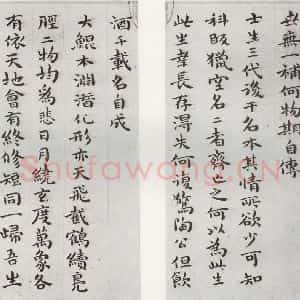 無一補何物期自傳
士生三代後干名本人情所欲少可知
科段獵空名二者齊亡之何以為此生
此生幸長存得失何復驚陶公但飲
酒千載名自成
大鯤本淵潛化形亦天飛截鶴續鳧
脛二物均為悲日月繞玄度萬象各
有依天地會有終修短同一歸吾生
Shufawang.CN